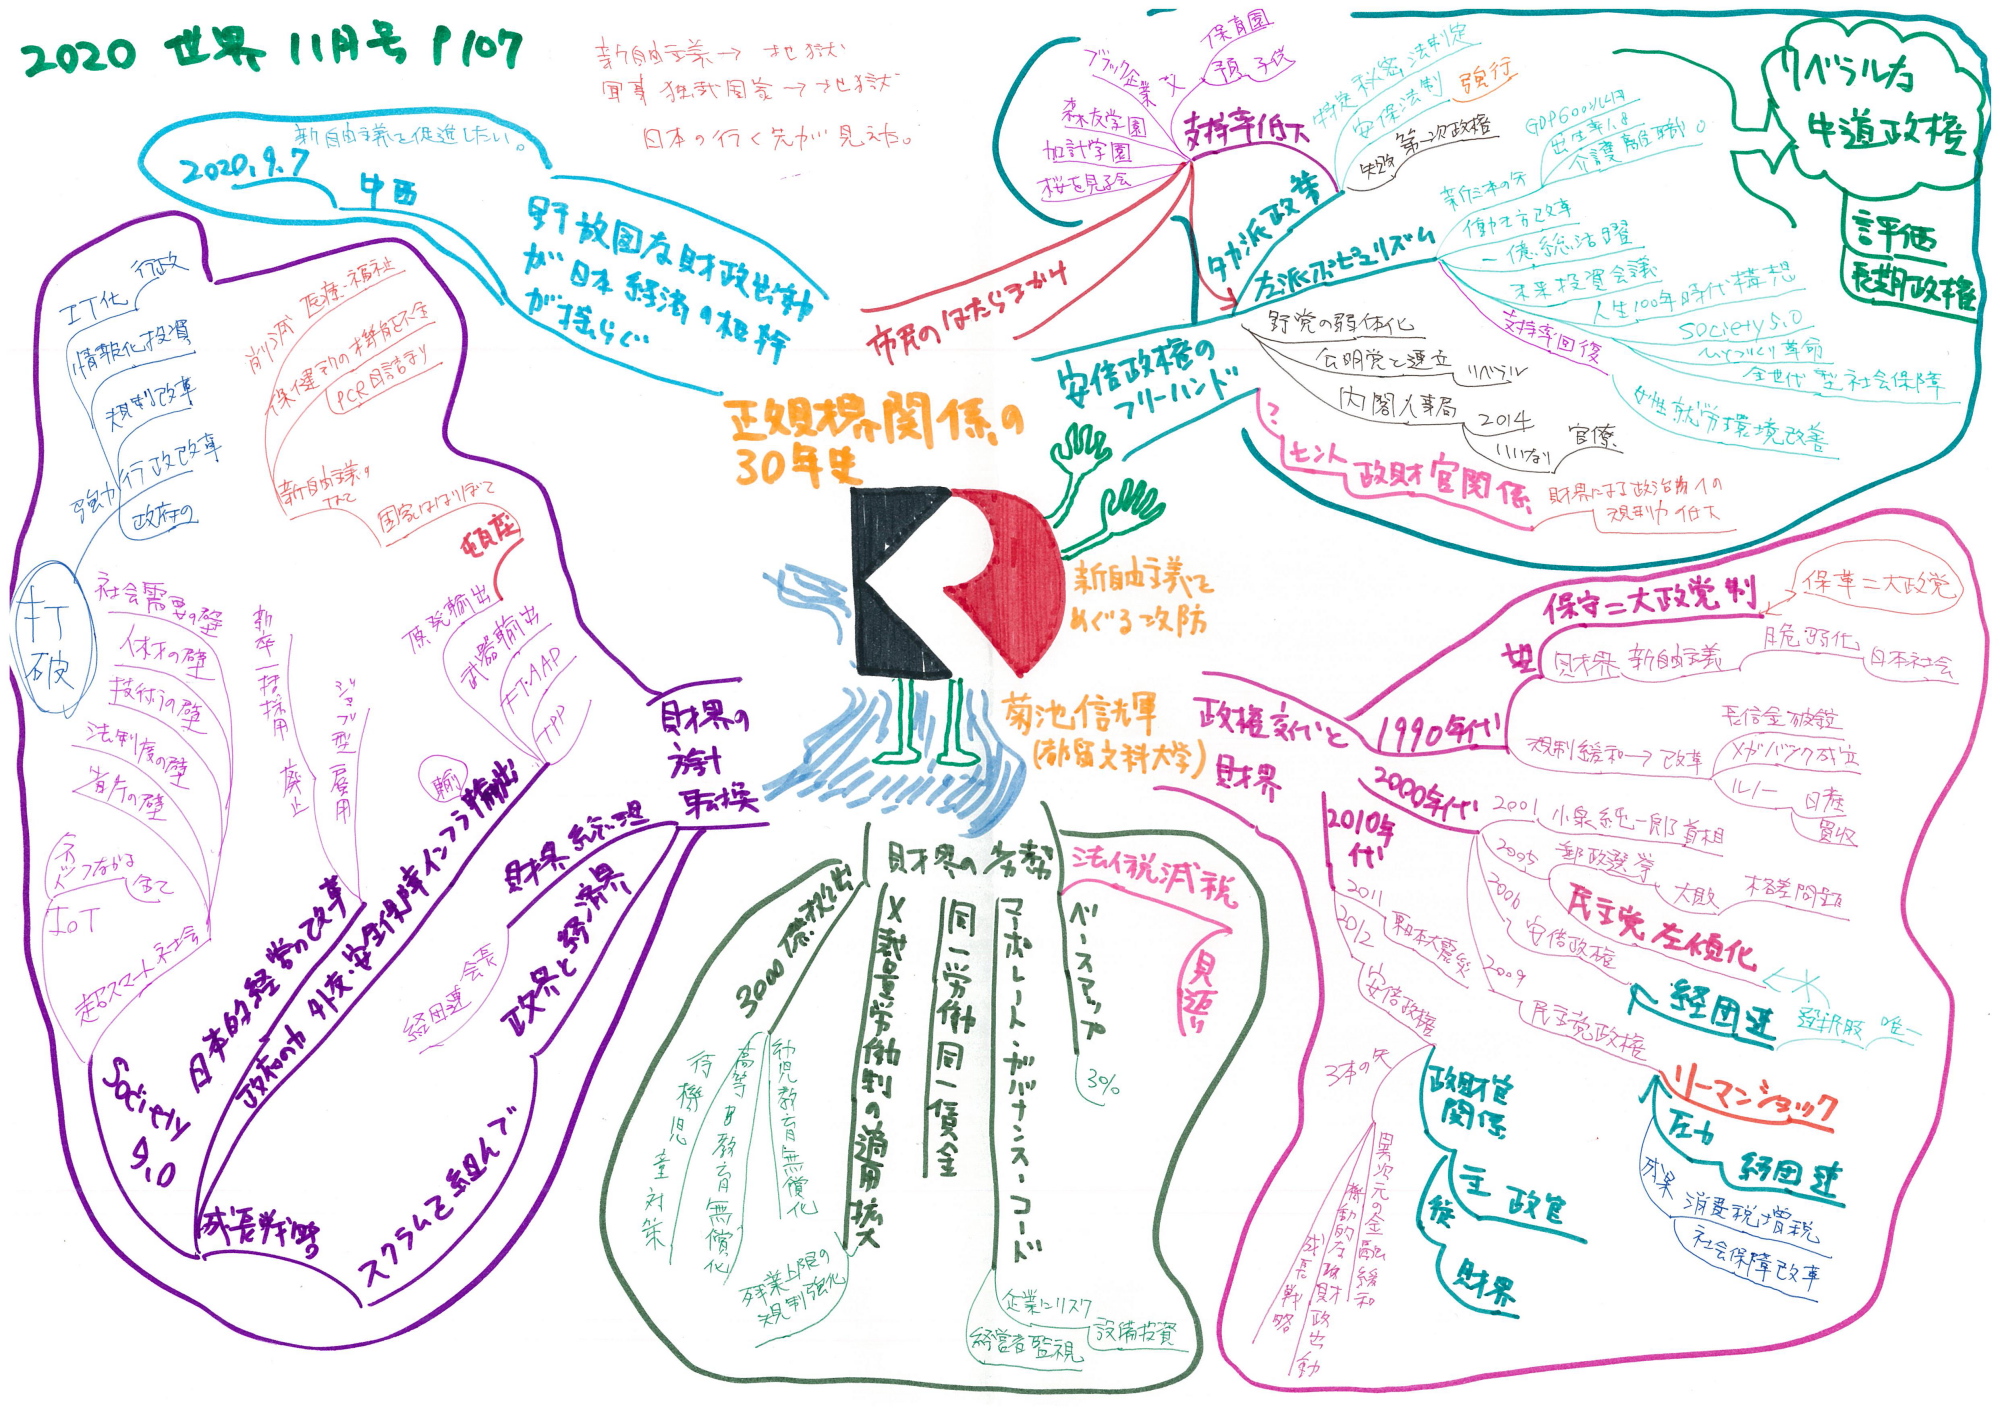 2020 世界 11月号 P107
新自由主義→ 地獄
軍事独裁国家→地獄
日本の行く先が見えた。
新自由主義を促進したい。
2020.9.7
中西
野放図な財政出動
が日本経済の根幹
が揺らぐ
政財界関係の
30年史
新自由主義を
めぐる攻防
菊池信輝
(都留文科大学)
市民のはたらきかけ
支持率低下
保育園
予供
ブラック企業
森友学園
加計学園
桜を見る会
安倍政権の
フリーハンド
タカ派政策
特定秘密法制定
安保法制
強行
失敗
第一次政権
左派ポピュリズム
新三本の矢
GDP600兆円
介護離職0
働き方改革
一億総活躍
未来投資会議
人生100年時代構想
Society5.0
ひとづくり革命
全世代型社会保障
支持率回復
女性就労環境改善
野党の弱体化
公明党と連立
リベラル
内閣人事局
2014
官僚
いいなり
?
ヒント
政財官関係
財界による政治購入の
規制力低下
リベラルな
中道政権
評価
長期政権
政権交代と
財界
1990年代
保守二大政党制
保革二大政党
財界
新自由主義
脆弱化
日本社会
規制緩和→改革
長信金破綻
メガバンク成立
ルノー
日産
買収
2000年代
2001
小泉純一郎首相
2005
郵政選挙
民主党左傾化
大敗
格差問題
2006
安倍政権
経団連
選択肢
唯一
2009
民主党政権
リーマンショック
圧力
経団連
成果
消費税増税
社会保障改革
2010年
代
2011
東日本大震災
2012
安倍政権
3本の矢
異次元の金融緩和
機動的な政財政出動
成長戦略
政財官
関係
主
政官
従
財界
財界の労働
法人税減税
見返り
ベースアップ
3%
コーポレート・ガバナンス・コード
企業にリスク
設備投資
経営者監視
同一労働同一賃金
×裁量労働制の適用拡大
残業上限の
規制強化
3000億拠出
幼児教育無償化
高等教育無償化
待機児童対策
財界の
方針
転換
財界総理
経団連会長
政界と経済界
スクラムを組んで
成長戦略
政府の力
外交・安全保障インフラ輸出
輸
TPP
FTAAP
武器輸出
原発輸出
頓座
日本的経営の改革
新卒一括採用
廃止
ジョブ型雇用
Society
5.0
超スマート社会
IoT
ネット
つながる
全て
省庁の壁
法制度の壁
技術の壁
人材の壁
社会需要の壁
打
破
強力
政府の
行政改革
規制改革
情報化投資
IT化
行政
新自由主義の
国家はほりぼて
保健所の機能不全
PCR目詰まり
削減
医療・福祉